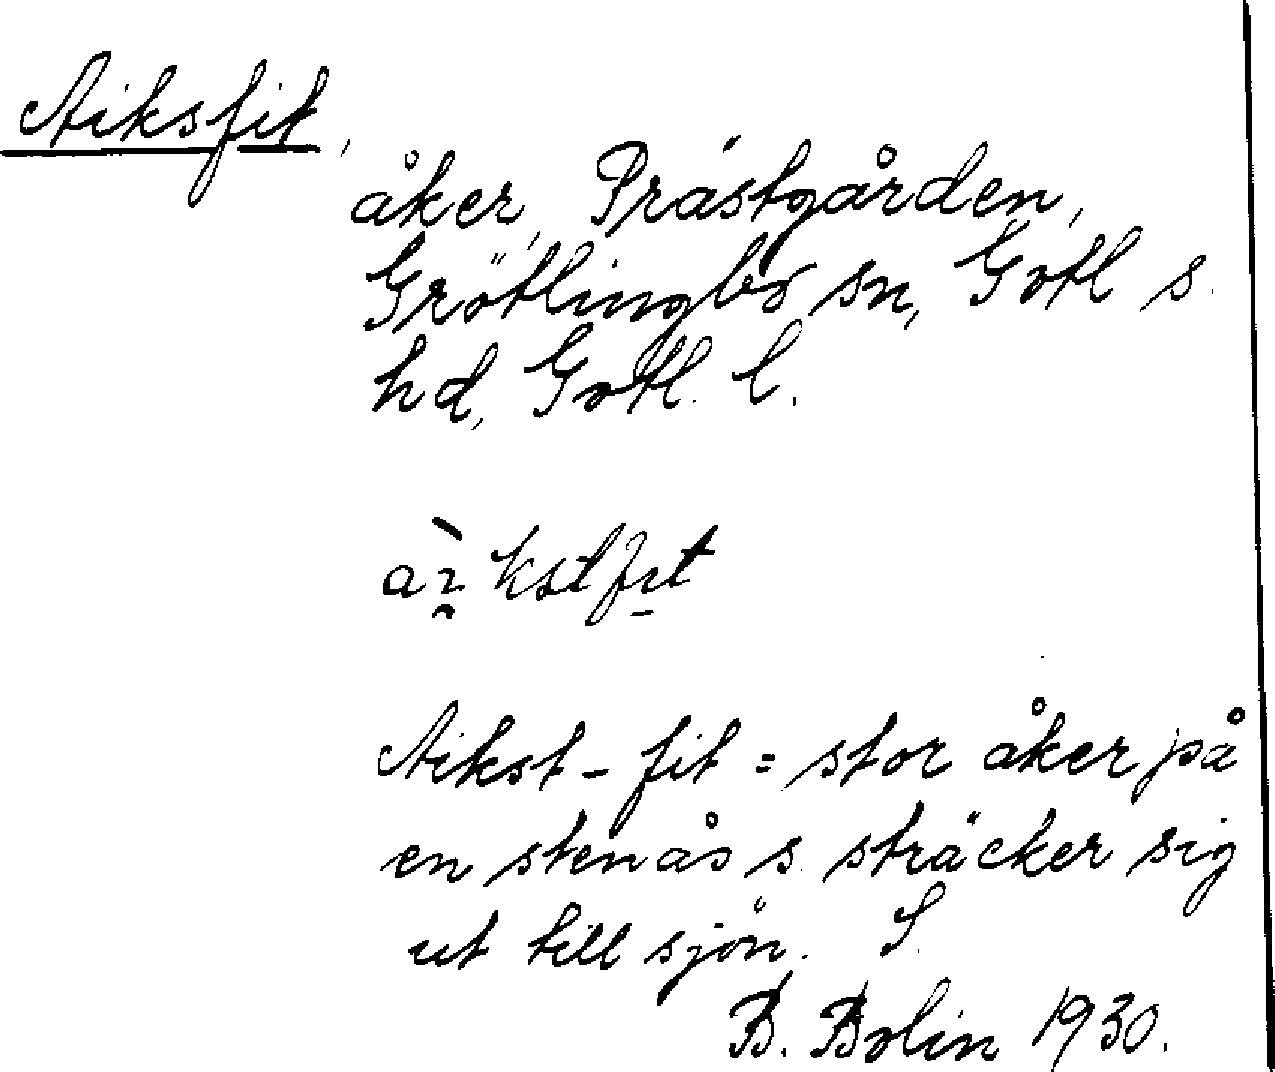 Aiksfit,
åker, Prästgården,
Grötlingbo sn, Gotl s.
hd, Gotl. l.
Aikst-fit = stor åker på
en stenås s. sträcker sig
ut till sjön. S.
B. Bolin 1930.